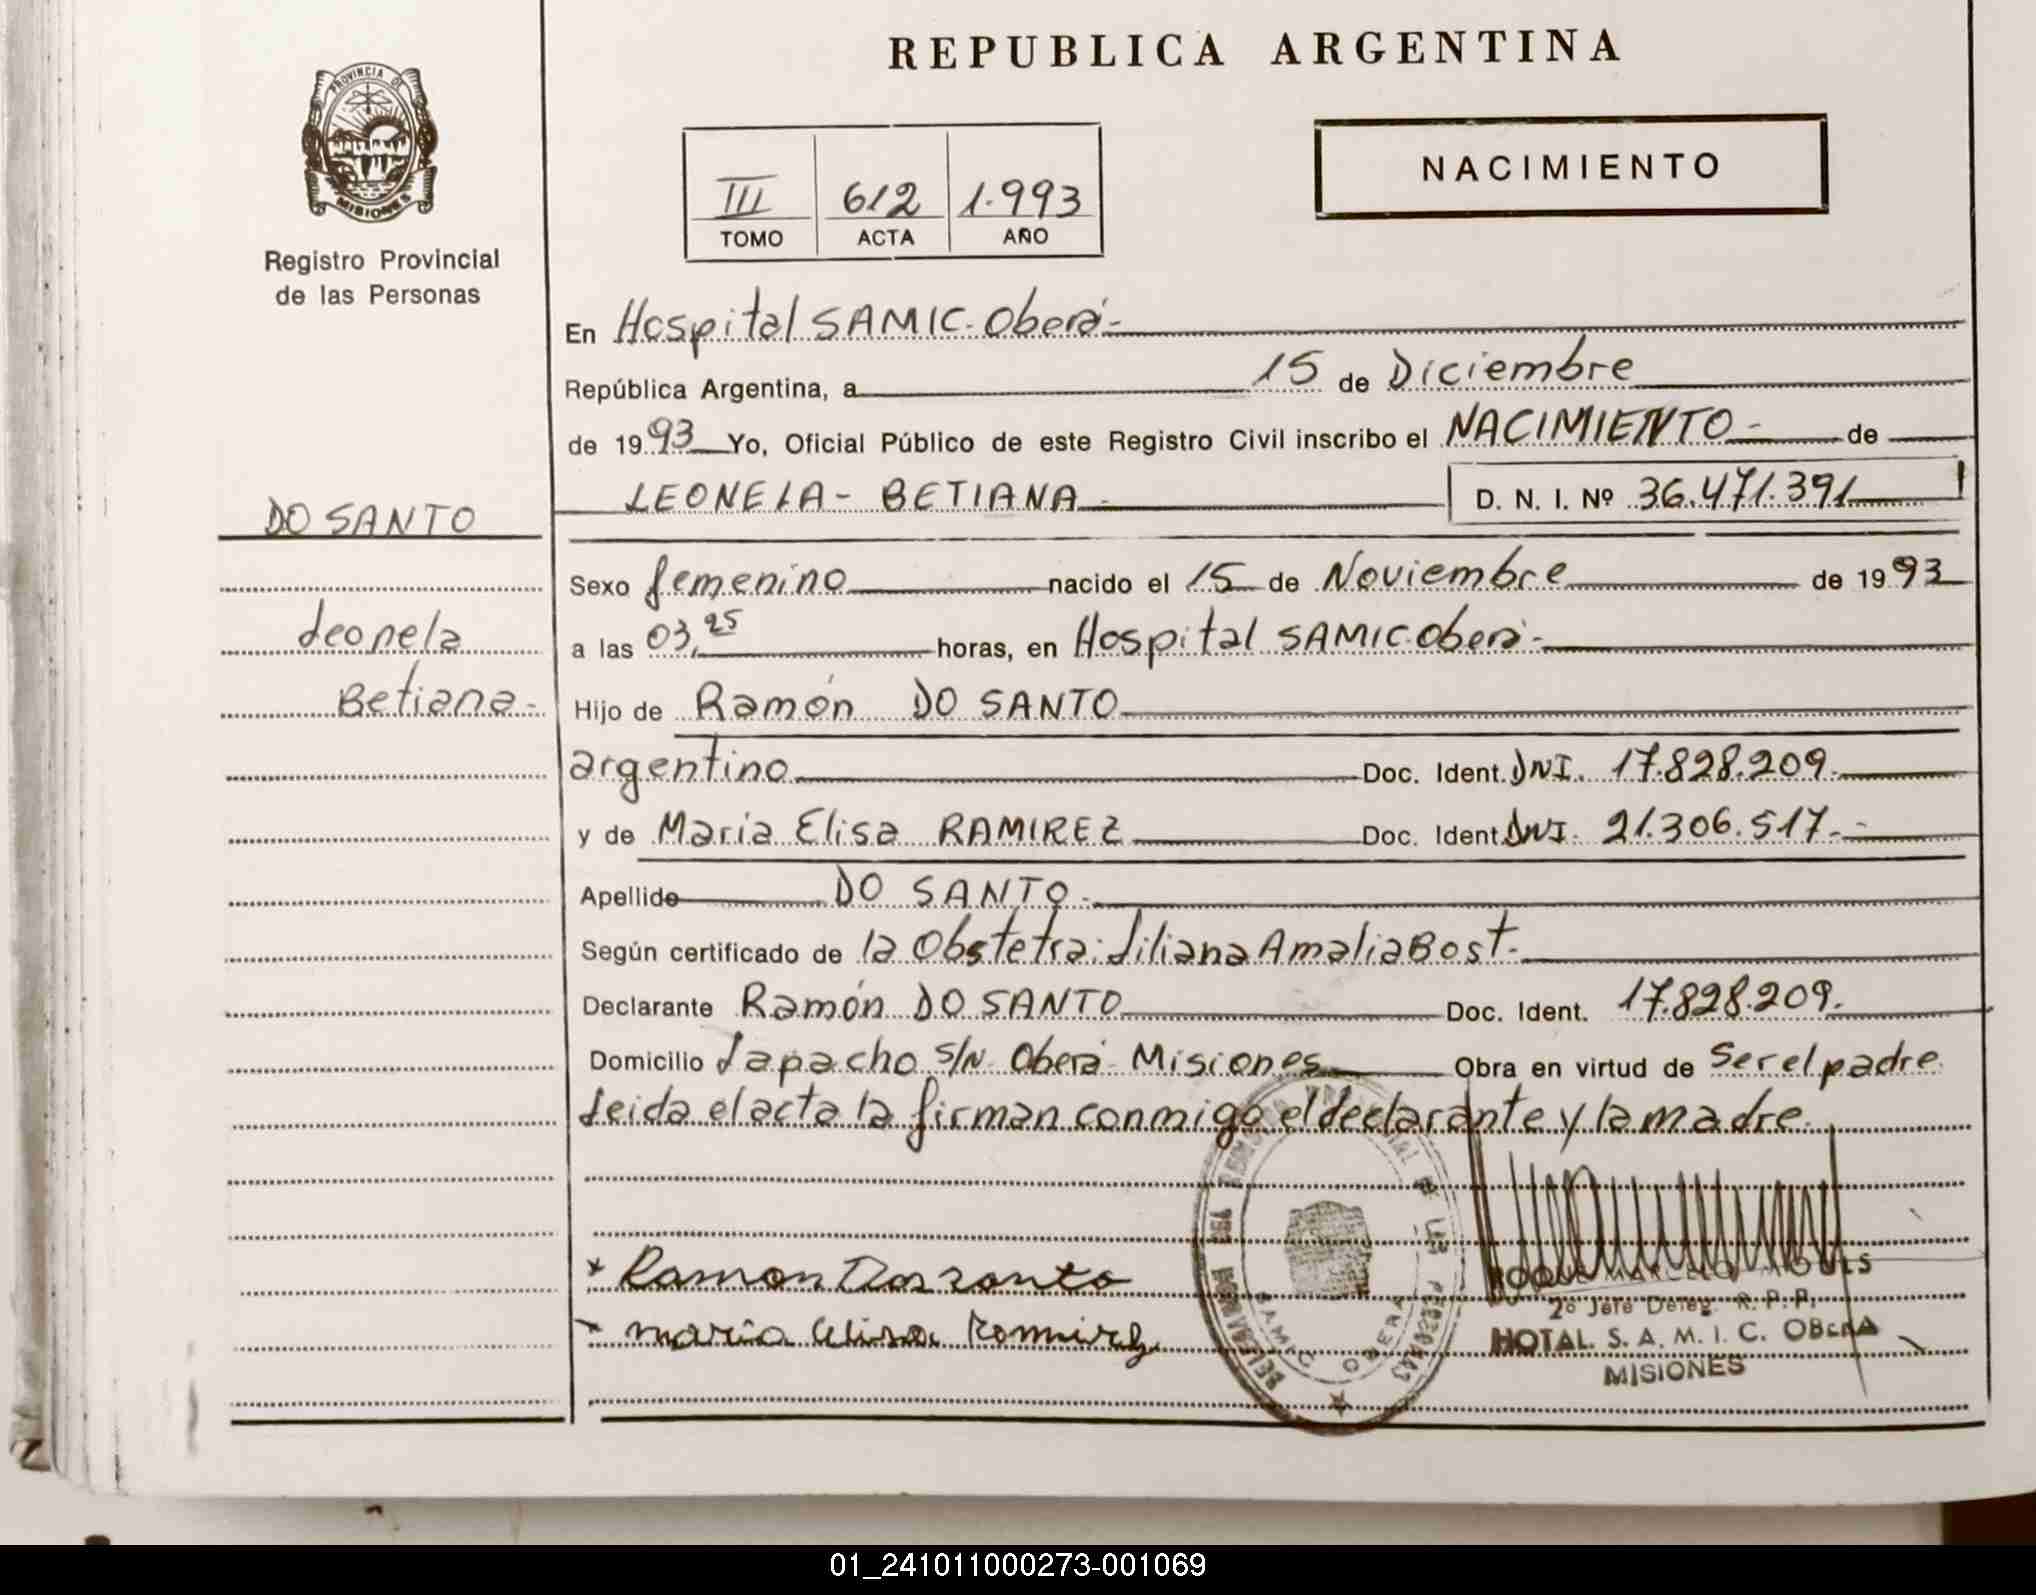 REPUBLICA ARGENTINA
PROVINCIA DE
MISIONES
Registro Provincial
de las Personas
NACIMIENTO
III 612 1.993
TOMO ACTA AÑO
En Hospital SAMIC-Oberá-
República Argentina, a 15 de Diciembre
de 1993 Yo, Oficial Público de este Registro Civil inscribo el NACIMIENTO- de
LEONELA- BETIANA- D. N. I. Nº 36.471.391
DO SANTO
Leonela
Betiana-
Sexo femenino nacido el 15 de Noviembre de 1993
a las 03,25 horas, en Hospital SAMIC-Oberá-
Hijo de Ramón DO SANTO
argentino Doc. Ident. DNI. 17.828.209.
y de María Elisa RAMIREZ Doc. Ident. DNI. 21.306.517.-
Apellido DO SANTO-
Según certificado de la Obstetra: Liliana Amalia Bost-
Declarante Ramón DO SANTO Doc. Ident. 17.828.209.
Domicilio Lapacho S/N- Oberá- Misiones Obra en virtud de Ser el padre
Leida el acta la firman conmigo el declarante y la madre.
x Ramon Dos santo
x maria elisa Ramirez
SAMIC OBERA
2º Jefe Deleg. R. P. P.
HOTAL. S. A. M. I. C. OBERA
MISIONES
01_241011000273-001069